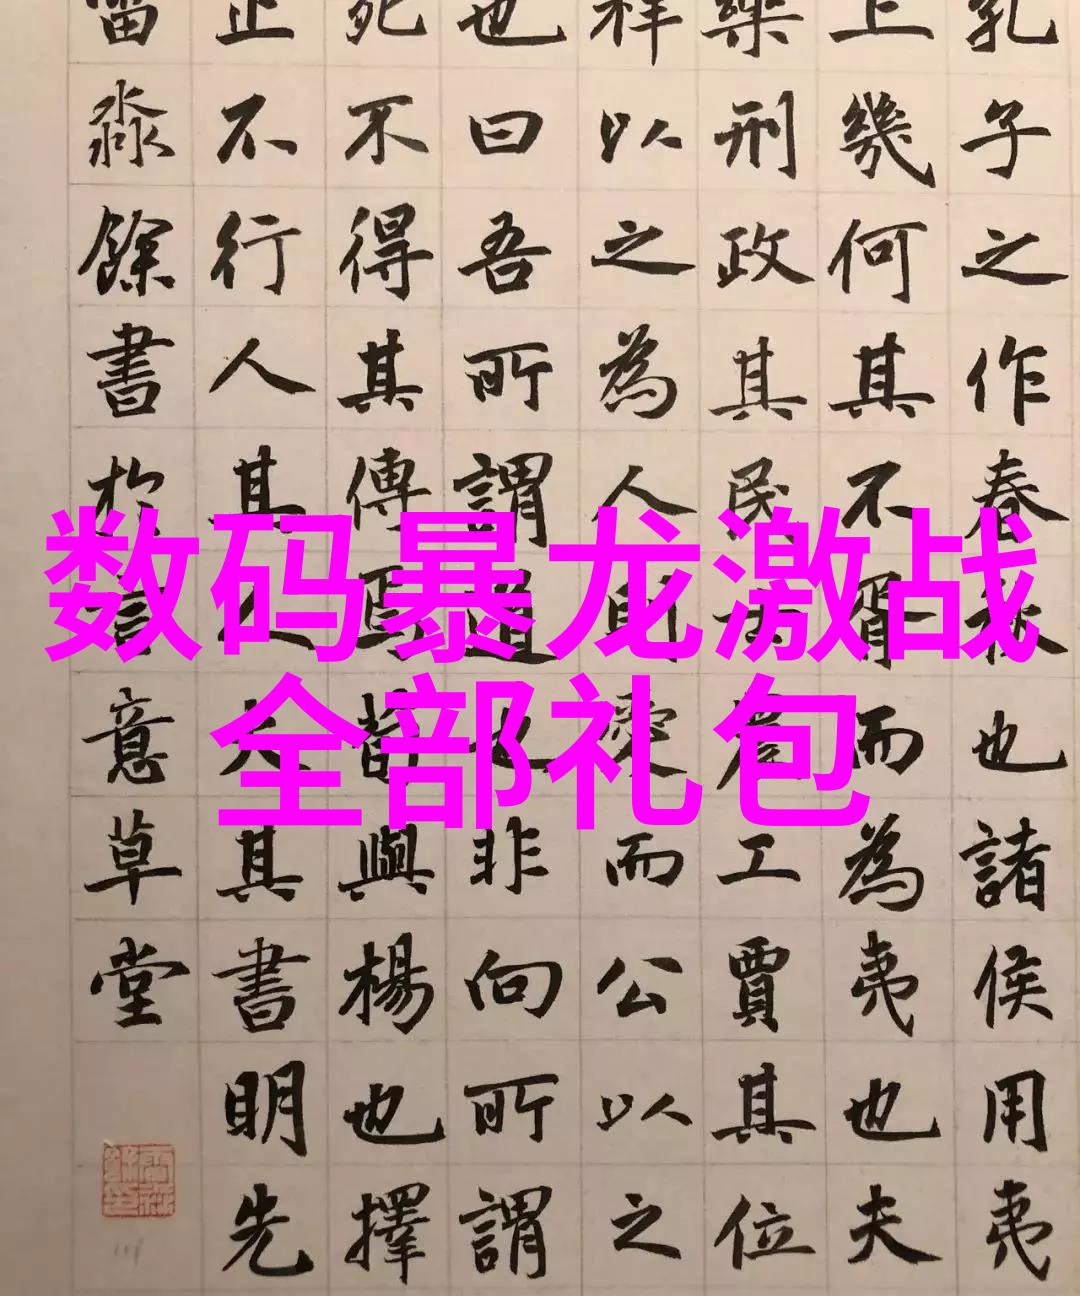 数码暴龙激战
全部礼包
孔子之作春秋也諸侯用夷
上幾何其不胥而為夷也夫
樂刑政其民士農工賈其位
祥以之為人則愛而公以之
也曰吾所謂道也非向所謂
死不得其傳焉皆與楊也擇
止不行人其人火其書明先
淼餘書於言意草堂